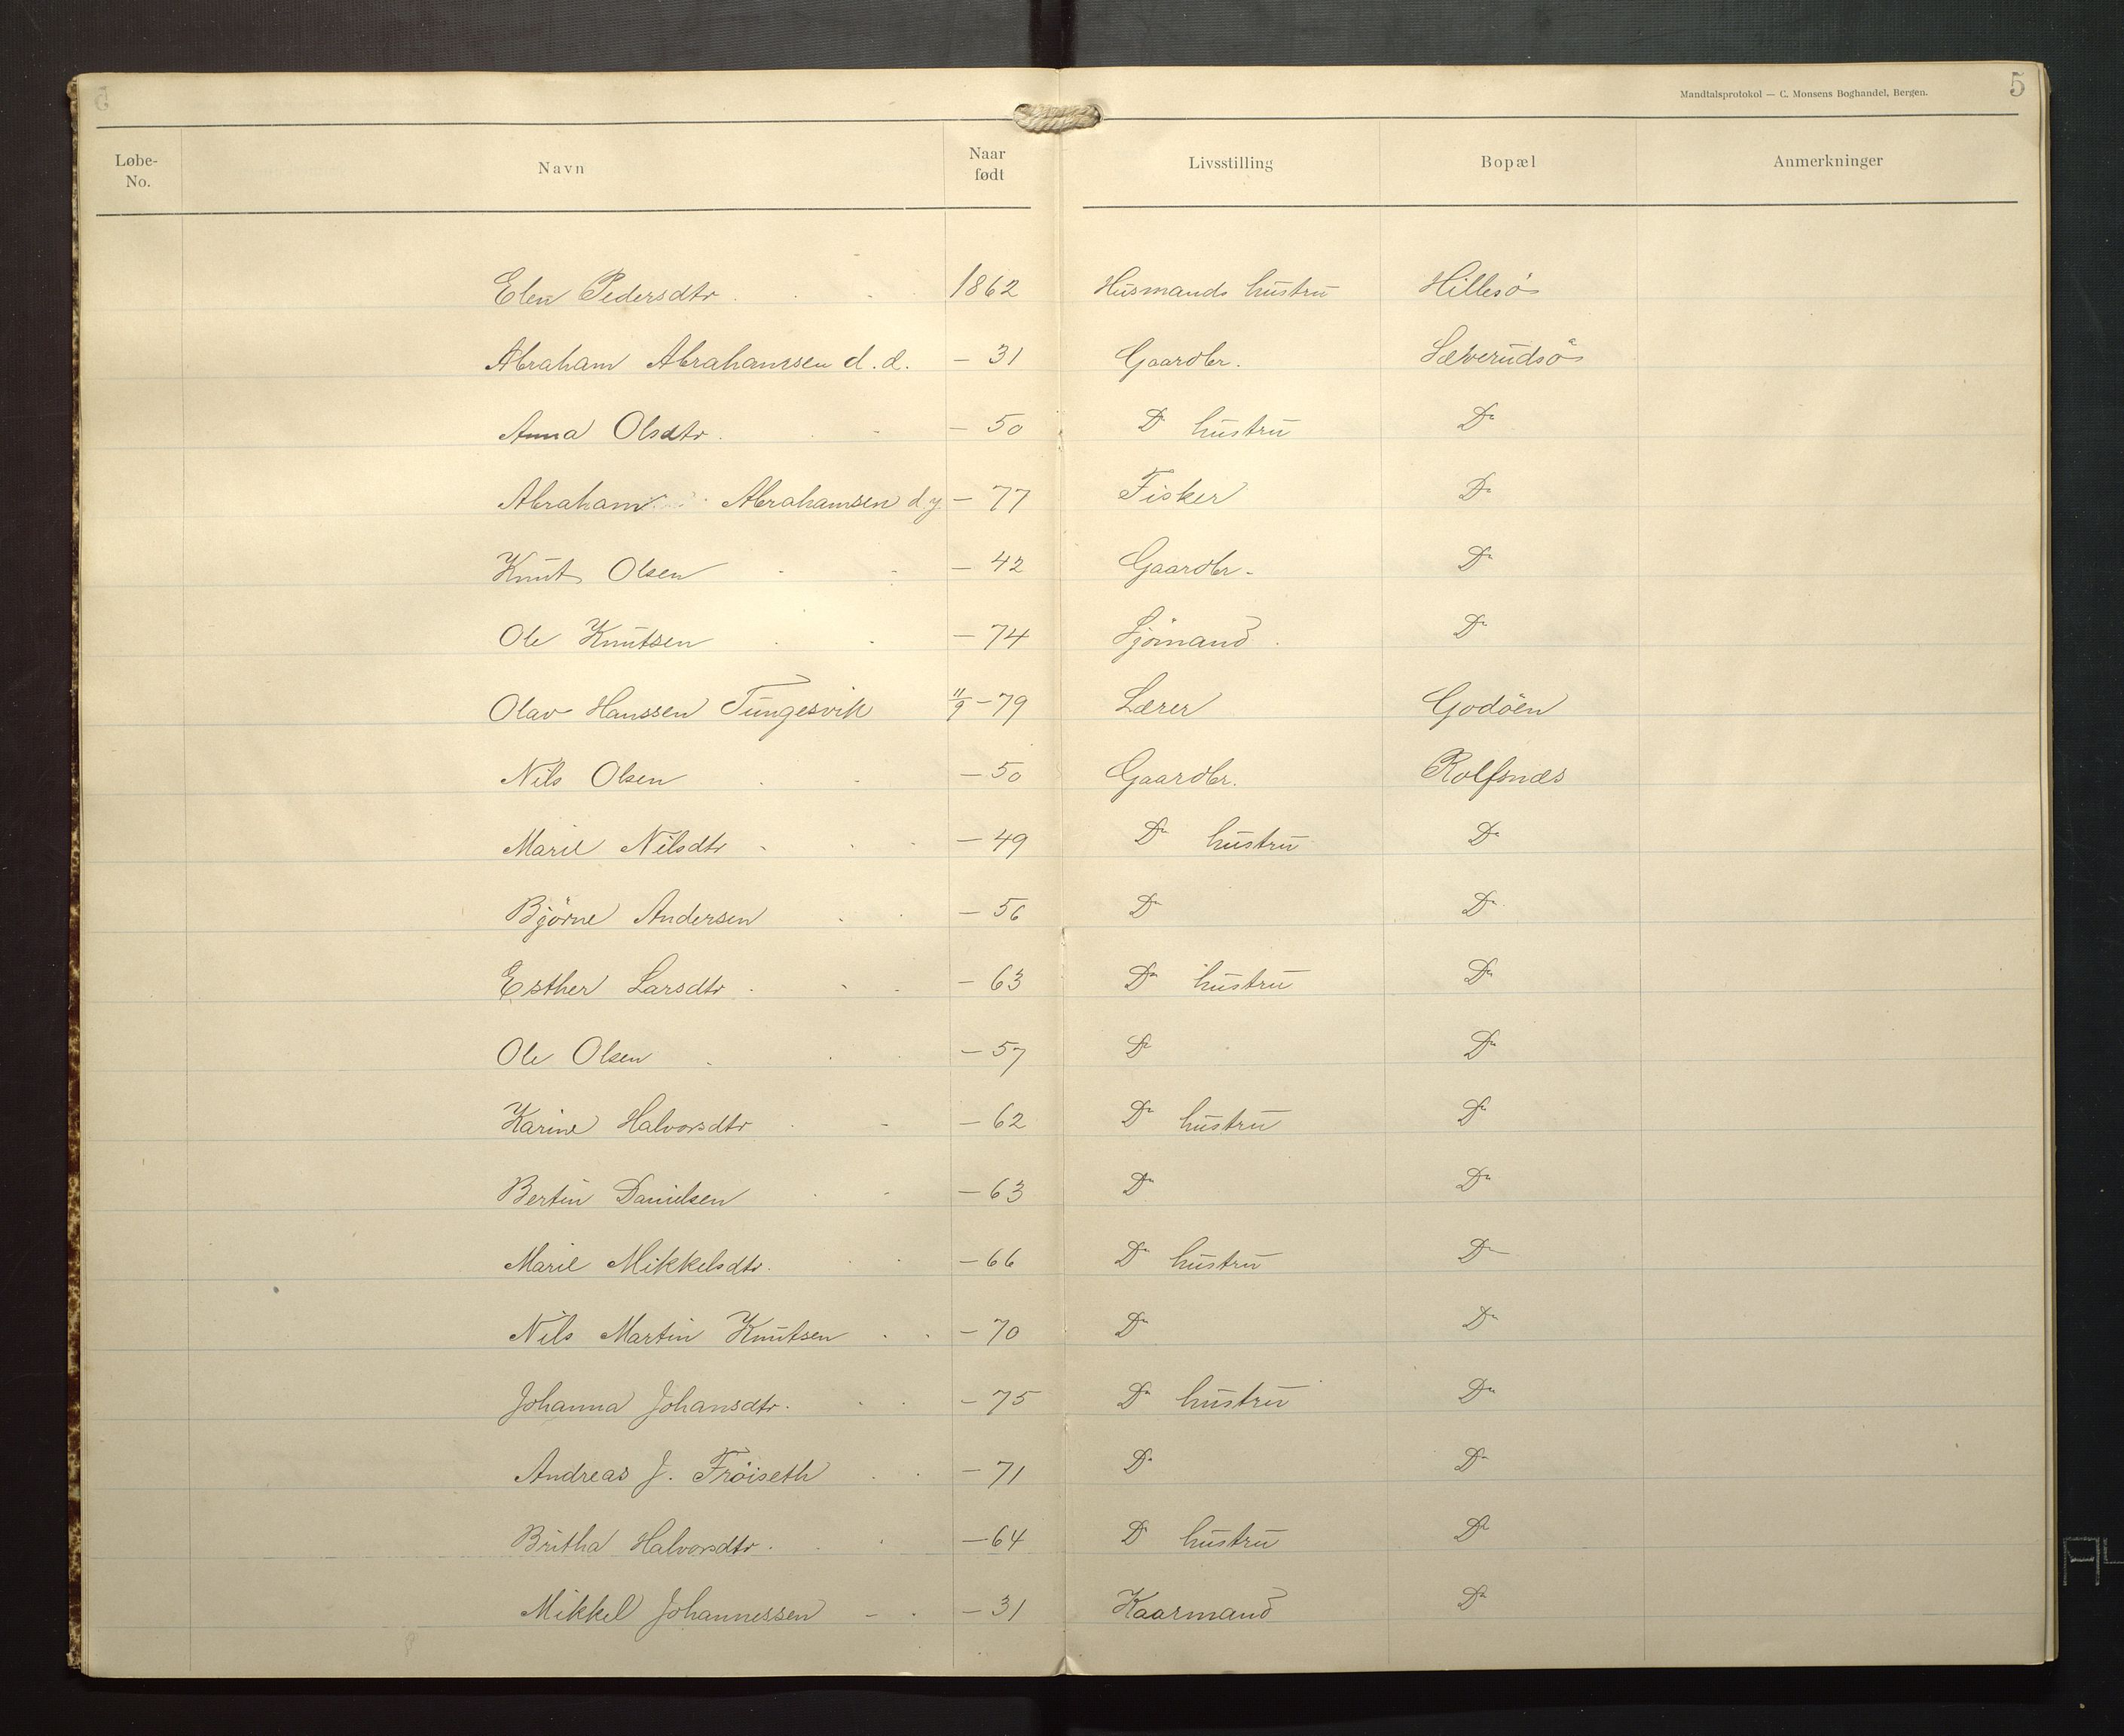 Mandtalsprotokol — C. Monsens Boghandel, Bergen. 5
Løbe-No. Navn Naar født Livsstilling Bopæl Anmerkninger
Elen Pedersdtr 1862 Husmands hustru Hillesö
Abraham Abrahamsen d.d. — 31 Gaardbr. Sæverudsö
Anna Olsdtr. — 50 Do hustru Do
Abraham Abrahamsen d.y. — 77 Fisker Do
Knut Olsen — 42 Gaardbr. Do
Ole Knutsen — 74 Sjömand Do
Olav Hanssen Tungesvik 11/9 — 79 Lærer Godöen
Nils Olsen — 50 Gaardbr. Rolfsnæs
Marie Nilsdtr — 49 Do hustru Do
Björne Andersen — 56 Do Do
Esther Larsdtr — 63 Do hustru Do
Ole Olsen — 57 Do Do
Karine Halvorsdtr — 62 Do hustru Do
Bertin Danielsen — 63 Do Do
Marie Mikkelsdtr. — 66 Do hustru Do
Nils Martin Knutsen — 70 Do Do
Johanna Johansdtr. — 75 Do hustru Do
Andreas J. Fröiseth — 71 Do Do
Britha Halvorsdtr. — 64 Do hustru Do
Mikkel Johannessen — 31 Kaarmand Do